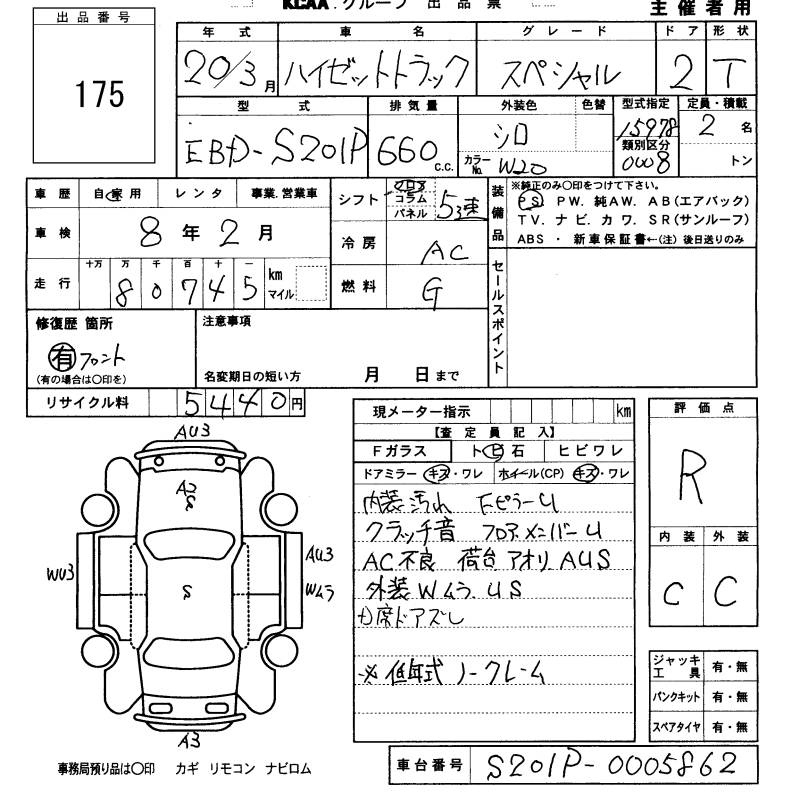 KCAA グループ 出品票
主催者用
出品番号
175
年式 車名 グレード ドア 形状
20/3月 ハイゼットトラック スペシャル 2 T
型式 排気量 外装色 色替 型式指定 定員・積載
EBD-S201P 660 c.c. シロ 15978 2名
カラーNo. W20 類別区分 0008 トン
車歴 自家用 レンタ 事業.営業車
シフト フロア コラム パネル 5速
装備品 ※純正のみ〇印をつけて下さい。
PS PW. 純AW. AB(エアバック)
TV. ナビ. カワ. SR(サンルーフ)
ABS ・ 新車保証書←(注) 後日送りのみ
車検 8年2月
冷房 AC
走行 十万 万 千 百 十 一
80745 km マイル
燃料 G
セールスポイント
修復歴 箇所
有 フロント
(有の場合は〇印を)
注意事項
名変期日の短い方 月 日まで
リサイクル料 5440円
現メーター指示 km
【査定員記入】
Fガラス トビ石 ヒビワレ
ドアミラー キズ・ワレ ホイール(CP) キズ・ワレ
内装汚れ Fピラーu
クラッチ音 フロアメンバーu
AC不良 荷台アオリAUS
外装Wムラ. US
席ドアズレ
※低年式ノークレーム
評価点
R
内装 外装
C C
ジャッキ工具 有・無
パンクキット 有・無
スペアタイヤ 有・無
AU3
A2
S
WU3
S
AU3
Wムラ
A3
事務局預り品は〇印 カギ リモコン ナビロム
車台番号 S201P-0005862